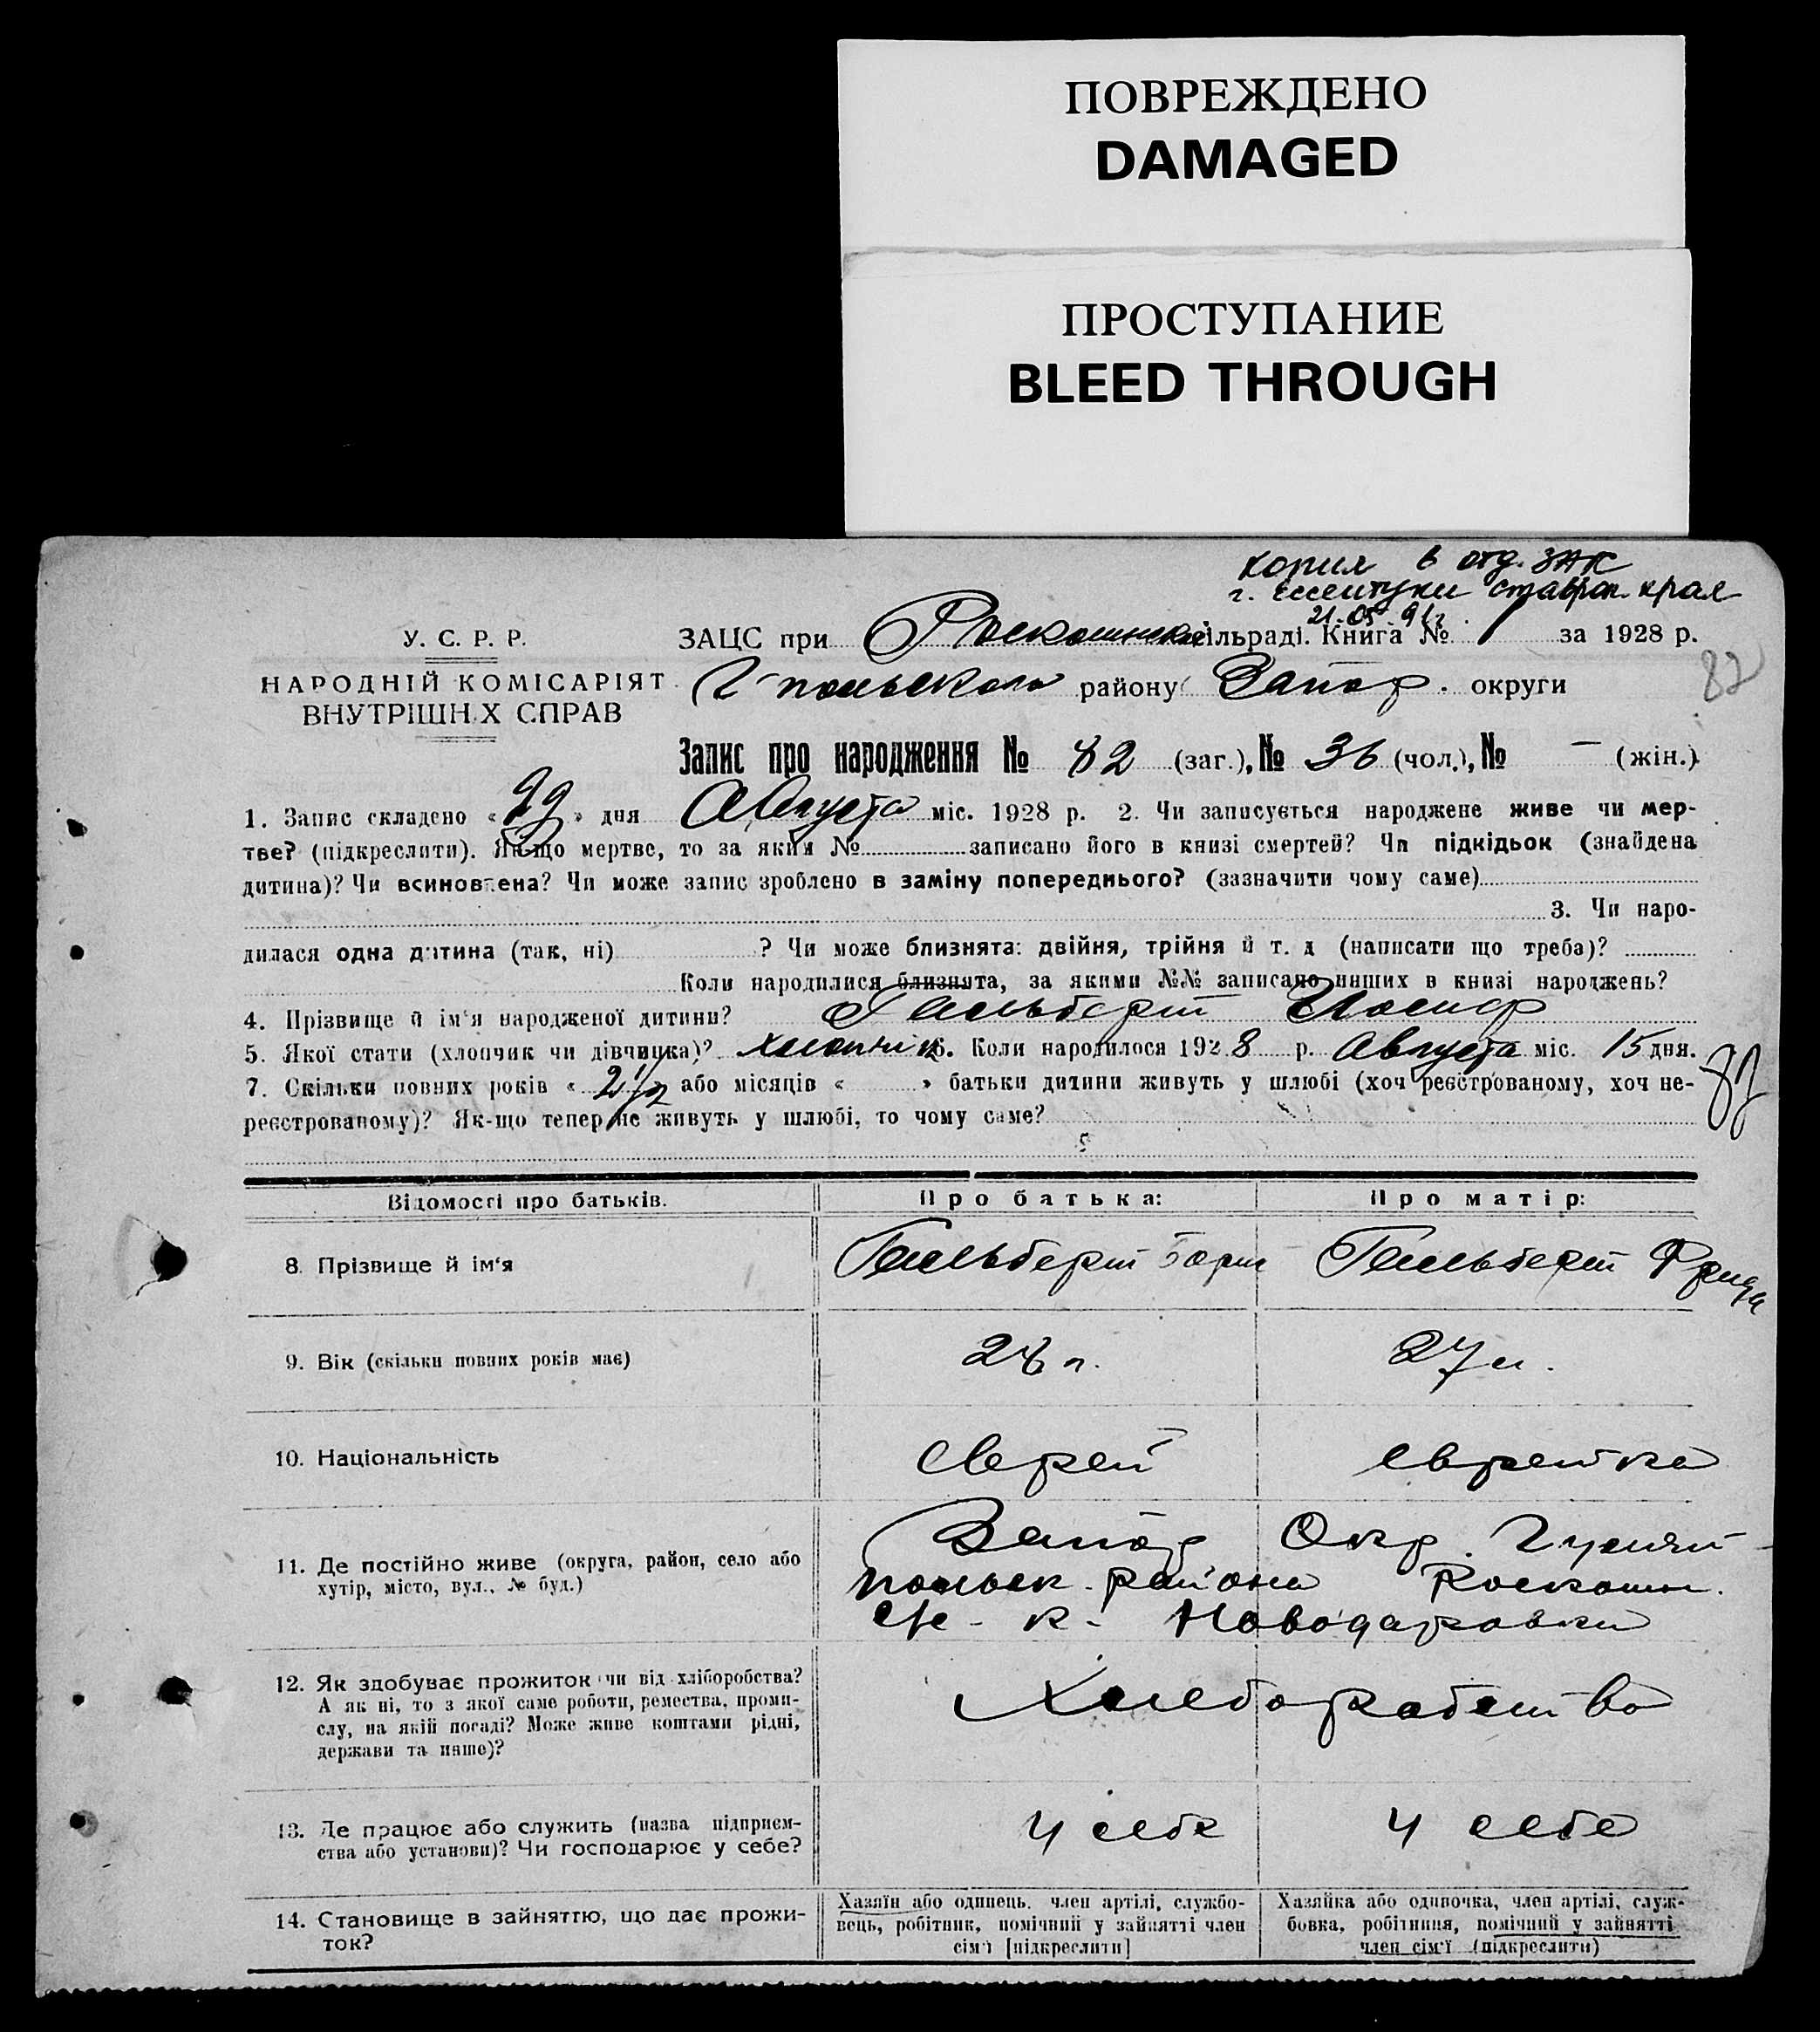 ПОВРЕЖДЕНО
DAMAGED
ПРОСТУПАНИЕ
BLEED THROUGH
копия в отд. ЗАГС
г. Ессентуки Ставроп. края
21.05.91г.
У. С. Р. Р.
НАРОДНІЙ КОМІСАРІЯТ
ВНУТРІШНІХ СПРАВ
ЗАЦС при Роскошинск. сільраді. Книга № 1 за 1928 р.
польского району Запор. округи
82
Запис про народження № 82 (заг.), № 36 (чол.), № — (жін.)
1. Запис складено « » дня Августа міс. 1928 р. 2. Чи записується народжене живе чи мер-
тве? (підкреслити). Як-що мертве, то за яким № записано його в книзі смертей? Чи підкідьок (знайдена
дитина)? Чи всиновлена? Чи може запис зроблено в заміну попереднього? (зазначити чому саме)
3. Чи наро-
дилася одна дитина (так, ні) ? Чи може близнята: двійня, трійня й т. д (написати що треба)?
Коли народилися близнята, за якими №№ записано инших в книзі народжень?
4. Прізвище й ім'я народженої дитини? Гильберт Иосиф
5. Якої стати (хлопчик чи дівчинка)? хлопчик 6. Коли народилося 1928 р. Августа міс. 15 дня.
7. Скільки повних років « 2 1/2 » або місяців « » батьки дитини живуть у шлюбі (хоч реєстрованому, хоч не-
реєстрованому)? Як-що тепер не живуть у шлюбі, то чому саме?
82
Відомості про батьків. Про батька: Про матір:
8. Прізвище й ім'я Гильберт Борис Гильберт Фрида
9. Вік (скільки повних років має) 28 л. 27 л.
10. Національність еврей еврейка
11. Де постійно живе (округа, район, село або
хутір, місто, вул., № буд.)
Запор Окр. Гуляй-
польск. района Роскошн.
с/с - к. Новодаровка
12. Як здобуває прожиток чи від хліборобства?
А як ні, то з якої саме роботи, ремества, проми-
слу, на якій посаді? Може живе коштами рідні,
держави та инше)?
Хлеборобство
13. Де працює або служить (назва підприєм-
ства або установи)? Чи господарює у себе?
У себе У себе
14. Становище в зайняттю, що дає прожи-
ток?
Хазяїн або одинець, член артілі, службо-
вець, робітник, помічний у зайнятті член
сім'ї [підкреслити]
Хазяйка або одиночка, член артілі, служ-
бовка, робітниця, помічний у зайнятті
член сім'ї (підкреслити)